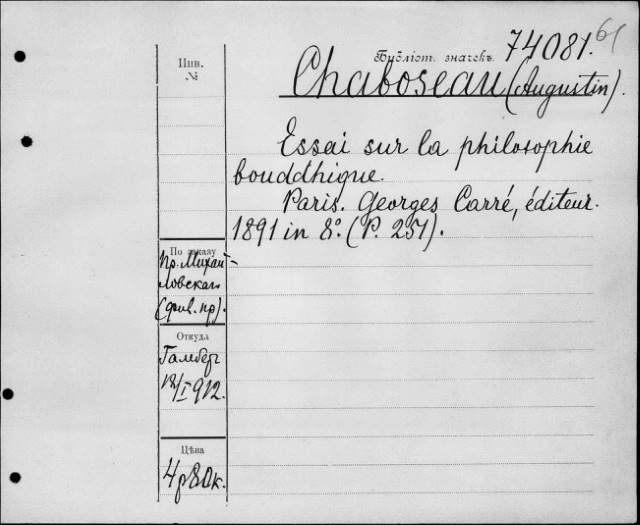 61
Библіот. значекъ 74081.
Инв.
№
Chaboseau (Augustin).
Essai sur la philosophie
bouddhique.
Paris. Georges Carré, éditeur.
1891 in 8º. (P. 251).
По заказу
Пр. Михай-
ловскаго
(фил. пр).
Откуда
18/I 912.
Цѣна
4 р 80 к.